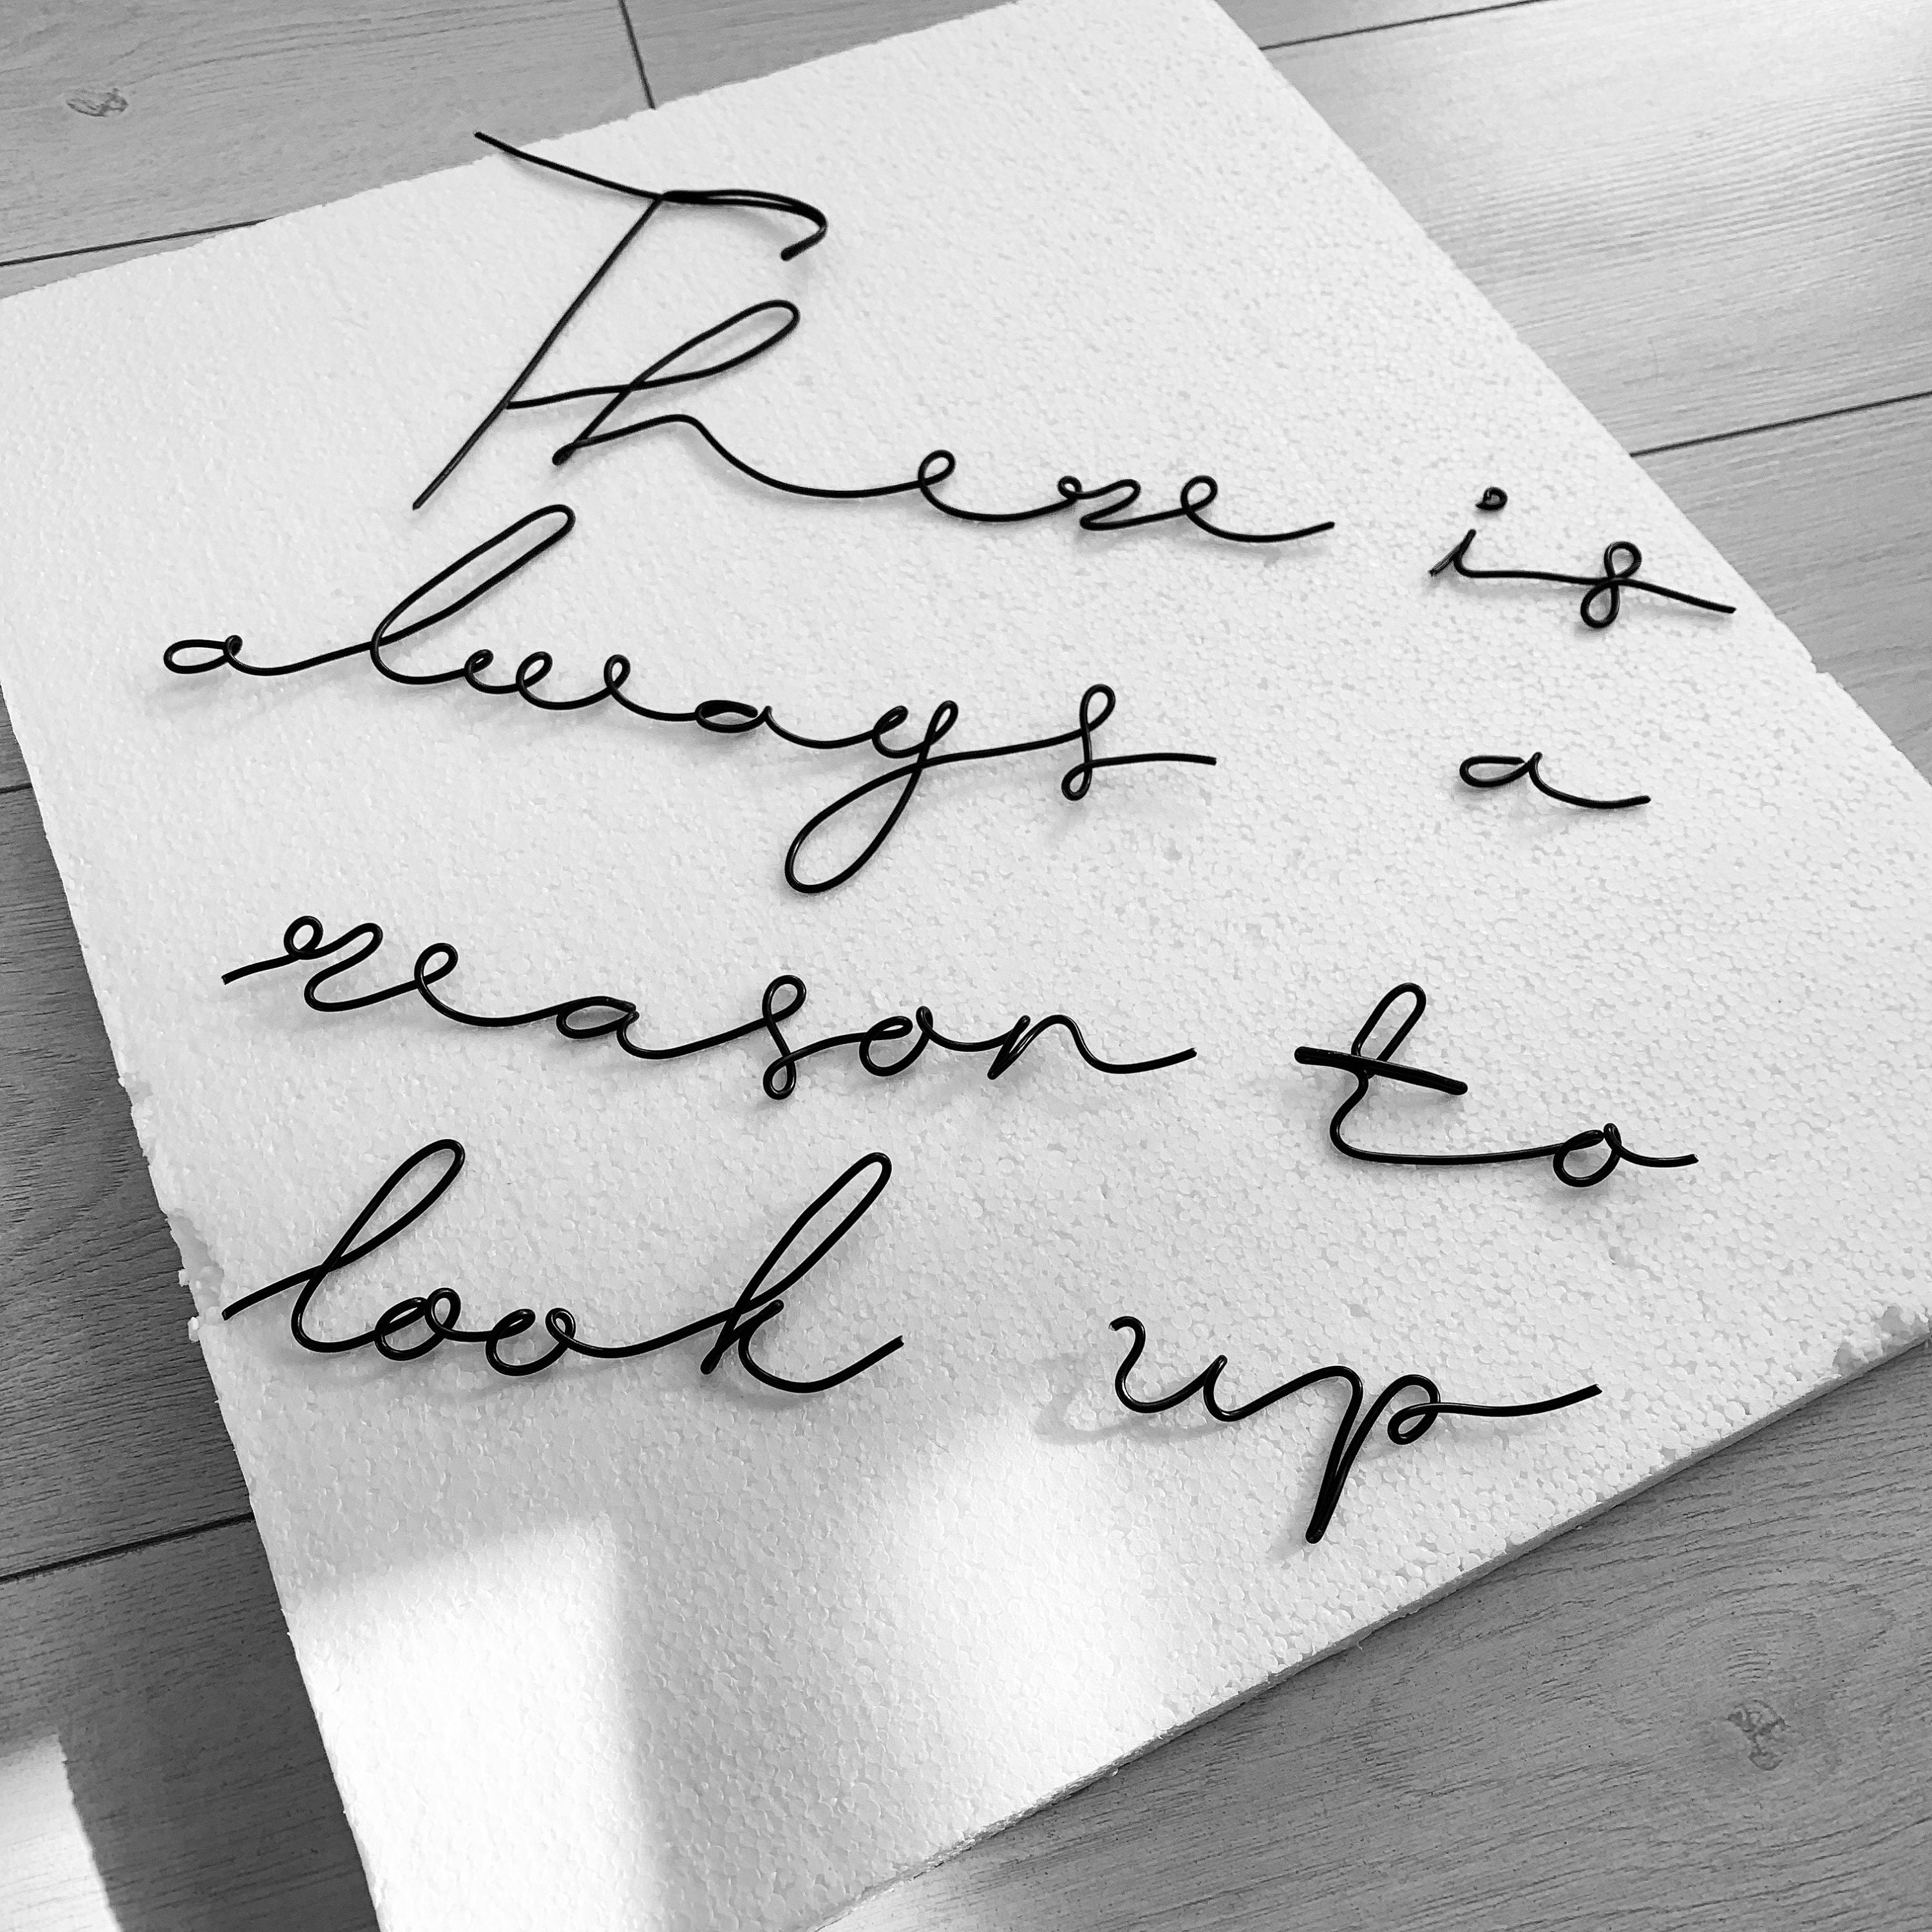 There is
always a
reason to
look up